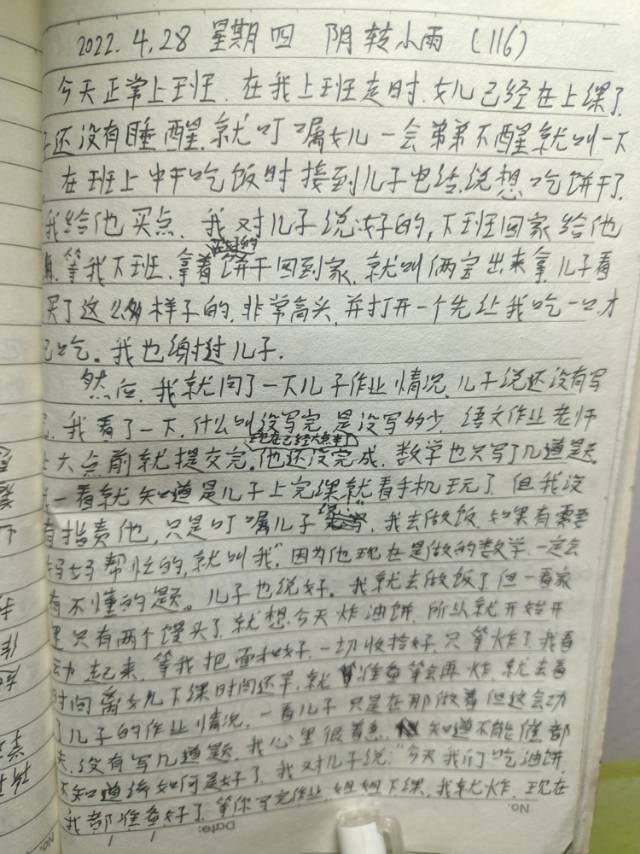 2022.4.28 星期四 阴转小雨 (116)
今天正常上班.在我上班走时.女儿已经在上课了.
子还没有睡醒.就叮嘱女儿一会弟弟不醒就叫一下
在班上中午吃饭时接到儿子电话.说想吃饼干了.
我给他买点.我对儿子说:好的,下班回家给他
买.等我下班.拿着买好的饼干回到家.就叫俩宝出来拿.儿子看
买了这么多样子的.非常高兴.并打开一个先让我吃一口.才
己吃。我也谢过儿子.
然后.我就问了一下儿子作业情况.儿子说还没有写
完.我看了一下.什么叫没写完.是没写多少.语文作业老师
六点前就提交完.现在已经六点半了他还没完成.数学也只写了几道题.
我一看就知道是儿子上完课就看手机玩了.但我没
有指责他,只是叮嘱儿子.我去做饭.如果有需要
妈妈帮忙的,就叫我".因为他现在是做的数学.一定会
有不懂的题。儿子也说好.我就去做饭了但一看家
里只有两个馒头了.就想.今天炸油饼.所以就开始开
动起来.等我把面和好.一切收拾好.只等炸了.我看
时间离女儿下课时间还早.就准备等会再炸.就去看
了儿子的作业情况.一看儿子只是在那做着但这会功
夫.没有写几道题.我心里很着急.知道不能催.都
不知道该如何是好了.我对儿子说:"今天我们吃油饼.
我都准备好了.等你写完作业.姐姐下课.我就炸.现在
No.
Date: